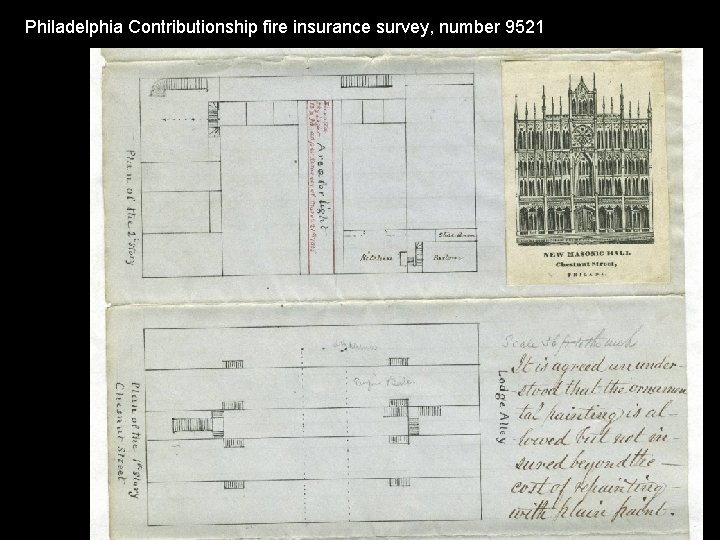 Philadelphia Contributionship fire insurance survey, number 9521
Plan of the 2d Story
Area for light
Kitchen
Parlour
NEW MASONIC HALL
Chestnut Street,
PHILADA.
Plan of the 1st Story
Chesnut Street
Lodge Alley
Scale
It is agreed on under-
stood that the ornamen
tal painting is al-
lowed but not in-
sured beyond the
cost of repainting
with plain paint.